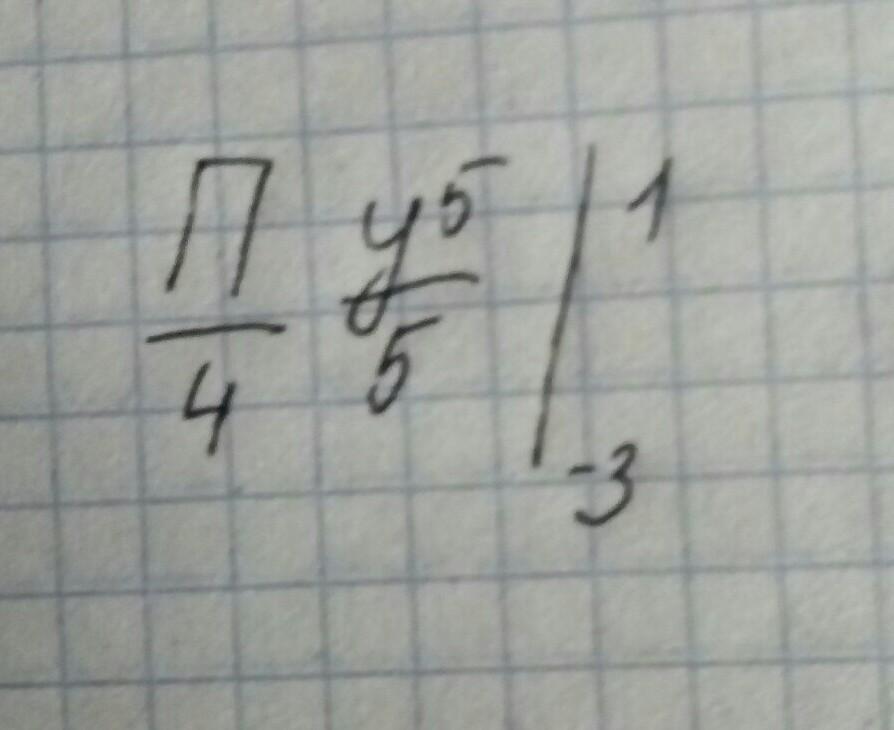 П/4 y^5/5 |_{-3}^{1}